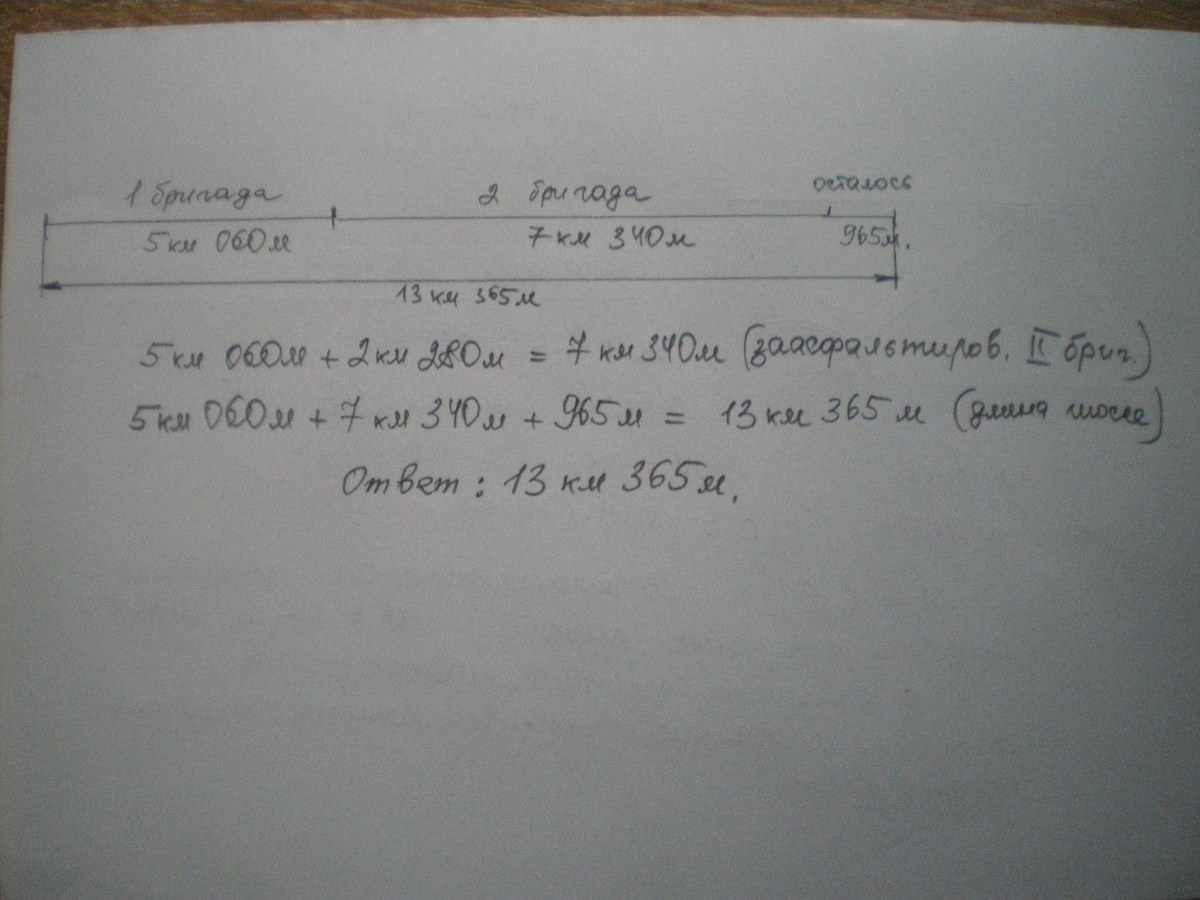 1 бригада 2 бригада осталось
5 км 060м 7 км 340м 965м.
13 км 365м
5 км 060м + 2 км 280м = 7 км 340м (заасфальтиров. II бриг.)
5 км 060м + 7 км 340м + 965м = 13 км 365 м (длина шоссе)
Ответ: 13 км 365м.